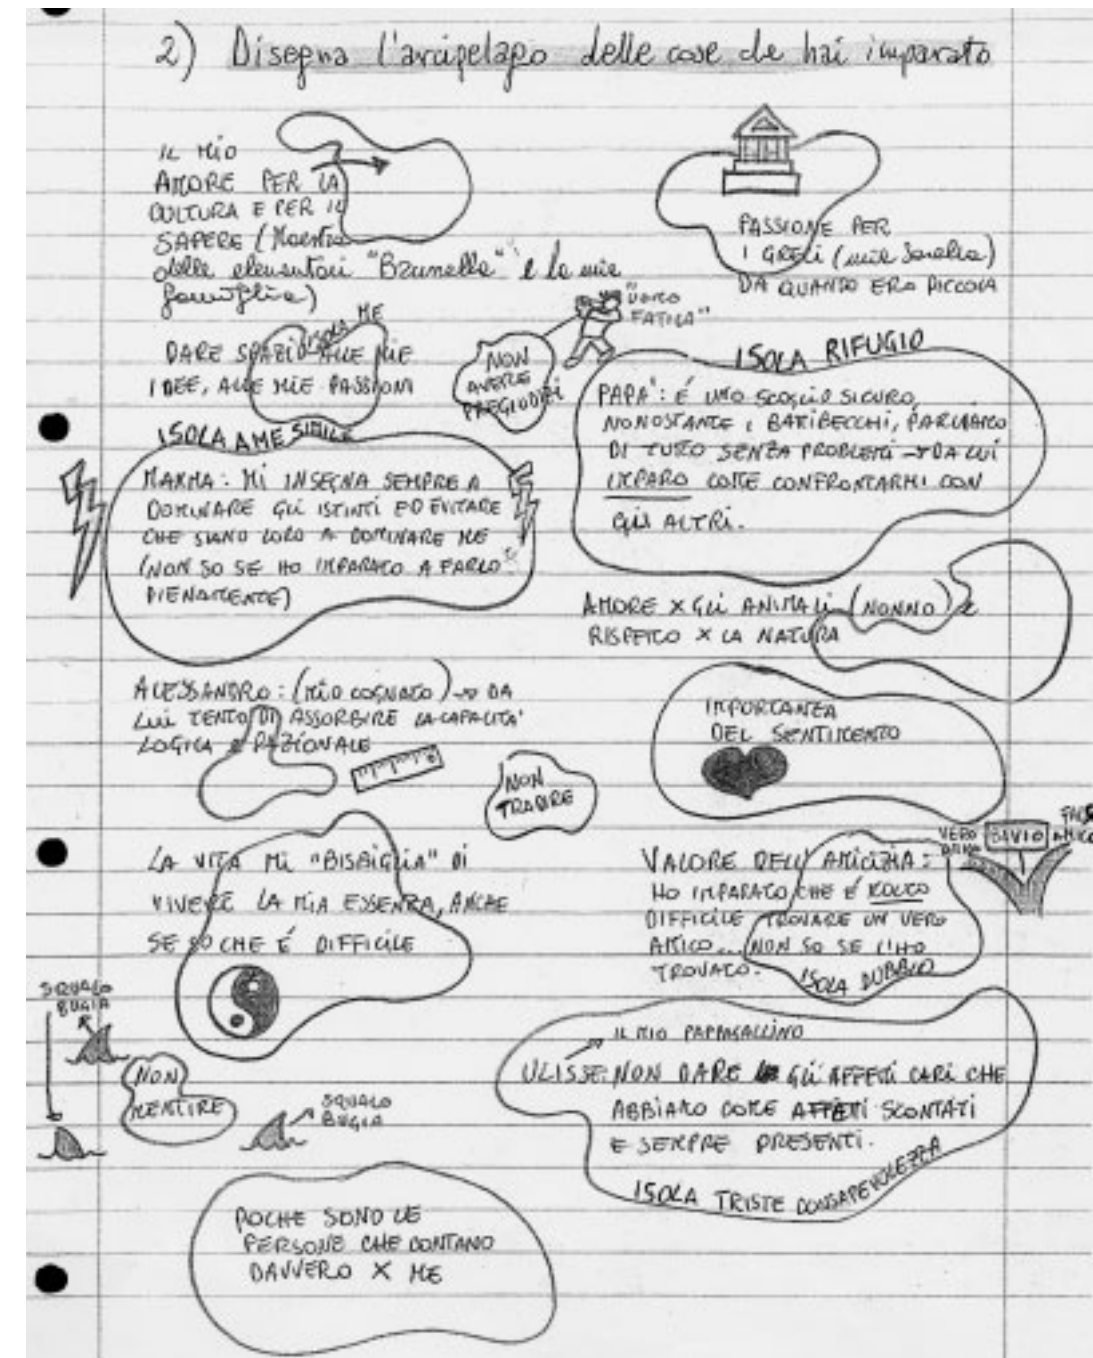 2) Disegna l'arcipelago delle cose che hai imparato
IL MIO
AMORE PER LA
CULTURA E PER IL
SAPERE (Maestra
delle elementari "Brunella" e la mia
famiglia)
PASSIONE PER
I GRECI (mia sorella)
DA QUANDO ERO PICCOLA
ISOLA ME
DARE SPAZIO ALLE MIE
IDEE, ALLE MIE PASSIONI
FATICA"
NON
AVERE
PREGIUDIZI
ISOLA RIFUGIO
PAPA': É UNO SCOGLIO SICURO,
NONOSTANTE I BATIBECCHI, PARLIAMO
DI TUTTO SENZA PROBLEMI → DA LUI
IMPARO COME CONFRONTARMI CON
GLI ALTRI.
ISOLA A ME SIMILE
MAMMA: MI INSEGNA SEMPRE A
DOMINARE GLI ISTINTI ED EVITARE
CHE SIANO LORO A DOMINARE ME
(NON SO SE HO IMPARATO A FARLO
PIENAMENTE)
AMORE X GLI ANIMALI (NONNO) E
RISPETTO X LA NATURA
ALESSANDRO: (MIO COGNATO) → DA
LUI TENTO DI ASSORBIRE LA CAPACITA'
LOGICA E RAZIONALE
NON
TRADIRE
IMPORTANZA
DEL SENTIMENTO
LA VITA MI "BISBIGLIA" DI
VIVERE LA MIA ESSENZA, ANCHE
SE SO CHE É DIFFICILE
VERO
BIVIO
VALORE DELL'AMICIZIA:
HO IMPARATO CHE É MOLTO
DIFFICILE TROVARE UN VERO
AMICO... NON SO SE L'HO
TROVATO.
ISOLA DUBBIO
SQUALO
BUGIA
NON
MENTIRE
SQUALO
BUGIA
IL MIO PAPPAGALLINO
ULISSE: NON DARE GLI AFFETTI CARI CHE
ABBIAMO COME AFFETTI SCONTATI
E SEMPRE PRESENTI.
ISOLA TRISTE CONSAPEVOLEZZA
POCHE SONO LE
PERSONE CHE CONTANO
DAVVERO X ME